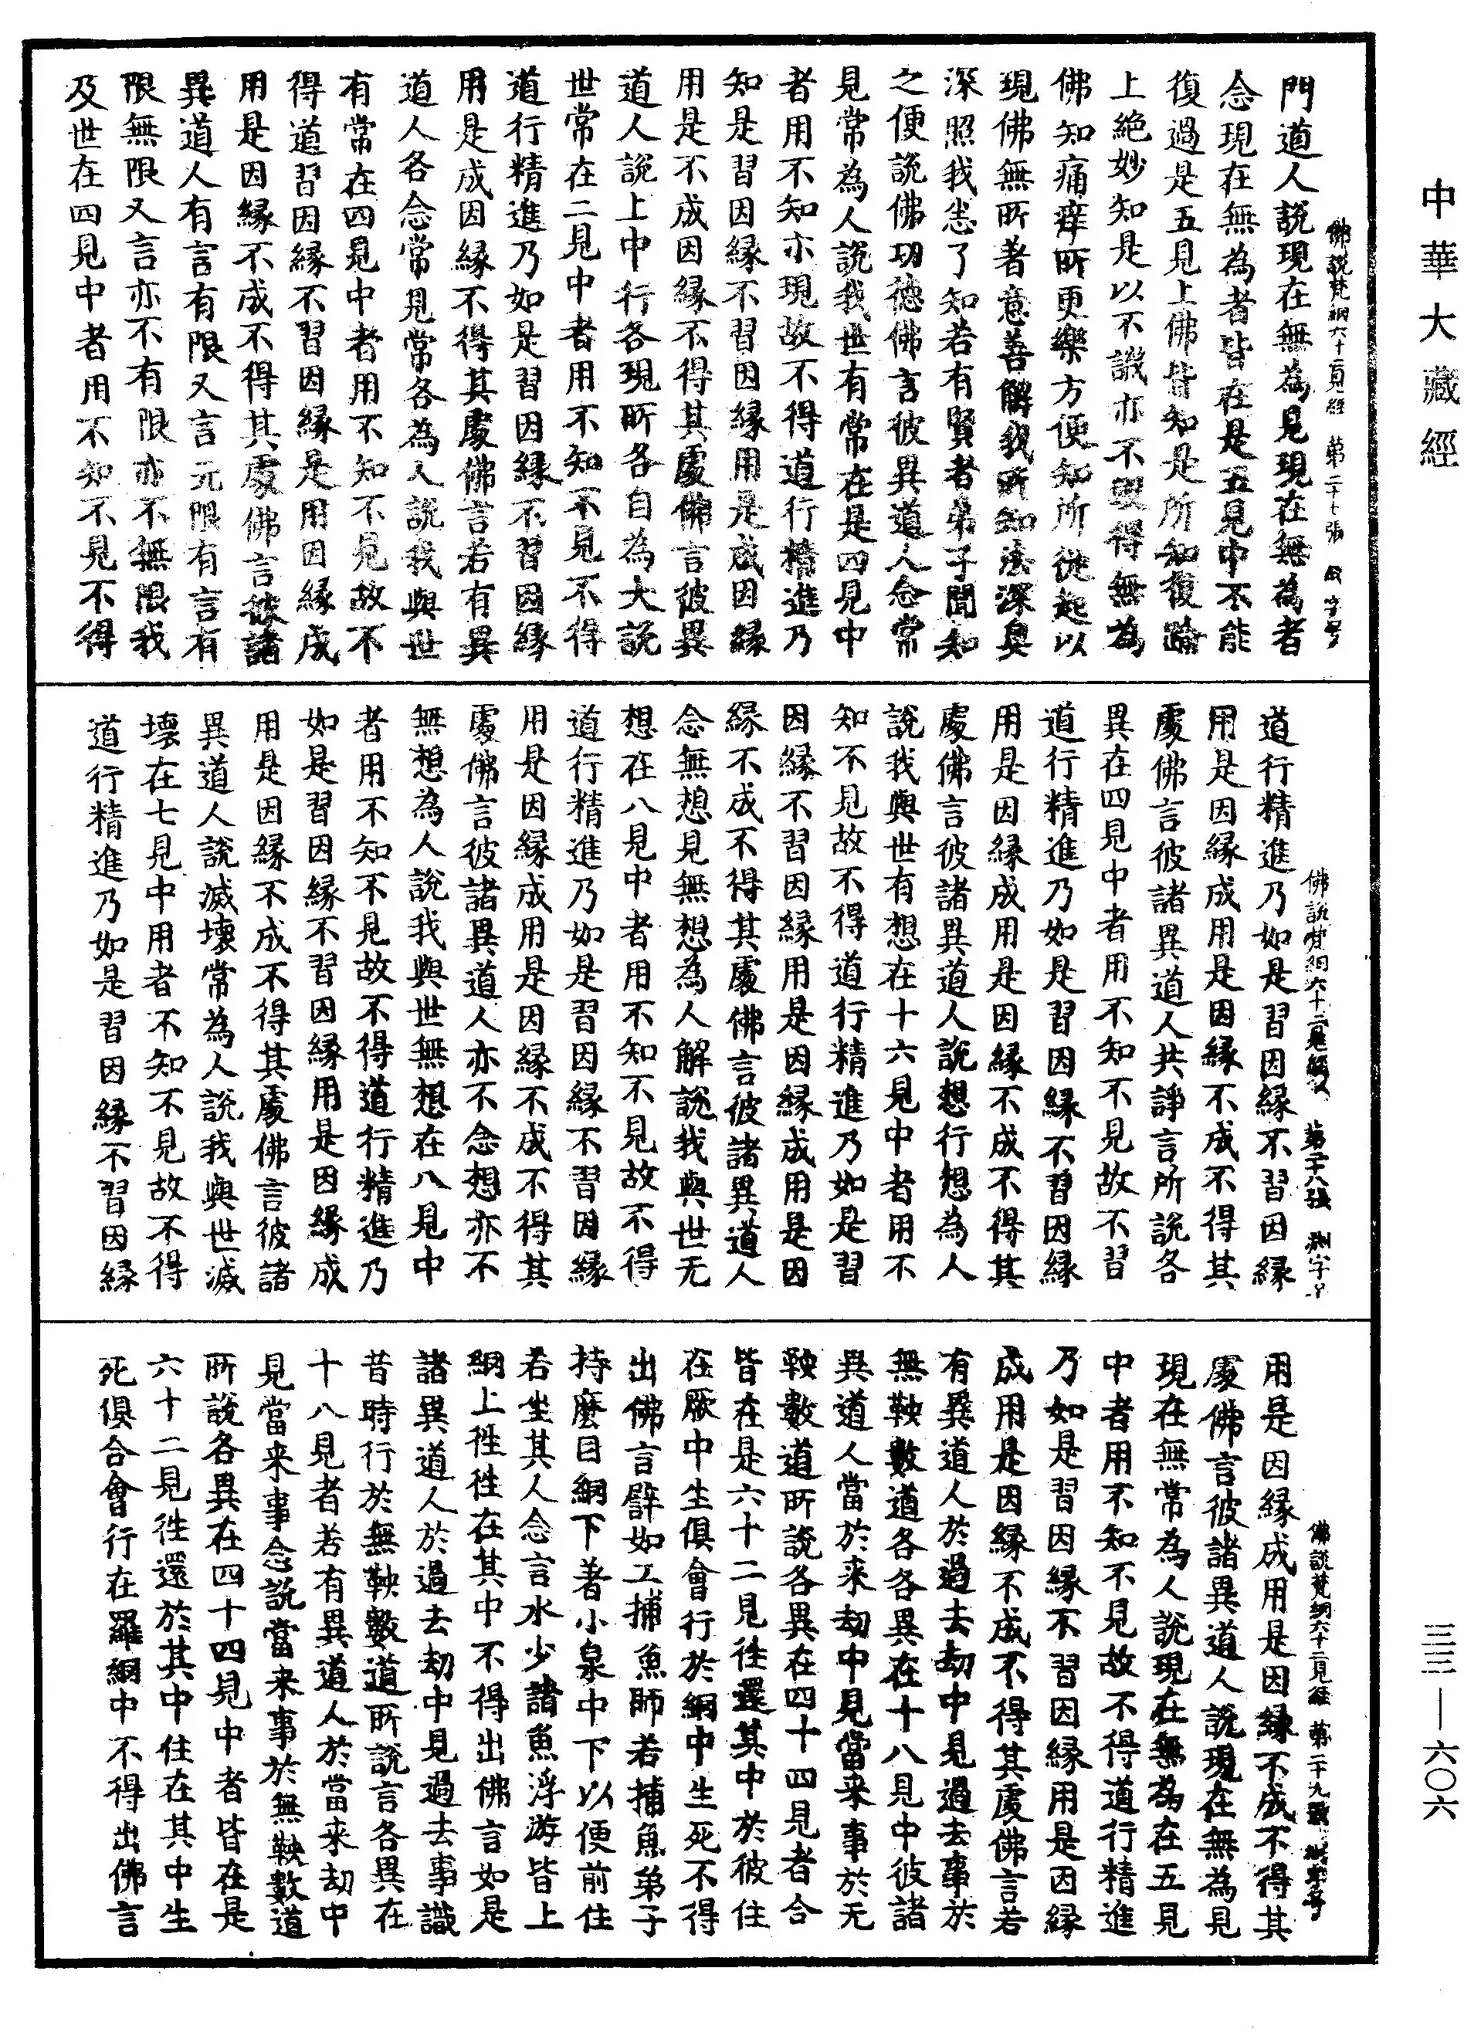 中華大藏經
三三—六〇六
門道人說現在無為見現在無為者
念現在無為者皆在是五見中不能
復過是五見上佛皆知是所知復踰
上絕妙知是以不譏亦不毀得無為
佛知痛痒所更樂方便知所從起以
現佛無所著意善解我所知法深奧
深照我悉了知若有賢者弟子聞知
之便說佛功德佛言彼異道人念常
見常為人說我世有常在是四見中
者用不知亦現故不得道行精進乃
知是習因緣不習因緣用是成因緣
用是不成因緣不得其處佛言彼異
道人說上中行各現所各自為大說
世常在二見中者用不知不見不得
道行精進乃如是習因緣不習因緣
用是成因緣不得其處佛言若有異
道人各念常見常各為人說我與世
有常在四見中者用不知不見故不
得道習因緣不習因緣是用因緣成
用是因緣不成不得其處佛言彼諸
異道人有言有限又言元限有言有
限無限又言亦不有限亦不無限我
及世在四見中者用不知不見不得
佛說梵網六十二見經 第二十七張
道行精進乃如是習因緣不習因緣
用是因緣成用是因緣不成不得其
處佛言彼諸異道人共諍言所說各
異在四見中者用不知不見故不習
道行精進乃如是習因緣不習因緣
用是因緣成用是因緣不成不得其
處佛言彼諸異道人說想行想為人
說我與世有想在十六見中者用不
知不見故不得道行精進乃如是習
因緣不習因緣用是因緣成用是因
緣不成不得其處佛言彼諸異道人
念無想見無想為人解說我與世无
想在八見中者用不知不見故不得
道行精進乃如是習因緣不習因緣
用是因緣成用是因緣不成不得其
處佛言彼諸異道人亦不念想亦不
無想為人說我與世無想在八見中
者用不知不見故不得道行精進乃
如是習因緣不習因緣用是因緣成
用是因緣不成不得其處佛言彼諸
異道人說滅壞常為人說我與世滅
壞在七見中用者不知不見故不得
道行精進乃如是習因緣不習因緣
佛說梵網六十二見經 第二十八張
用是因緣成用是因緣不成不得其
處佛言彼諸異道人說現在無為見
現在無常為人說現在無為在五見
中者用不知不見故不得道行精進
乃如是習因緣不習因緣用是因緣
成用是因緣不成不得其處佛言若
有異道人於過去劫中見過去事於
無鞅數道各各異在十八見中彼諸
異道人當於来劫中見當来事於无
鞅數道所說各異在四十四見者合
皆在是六十二見往還其中於彼住
在厥中生俱會行於網中生死不得
出佛言譬如工捕魚師若捕魚弟子
持麼目網下著小泉中下以便前住
若坐其人念言水少諸魚浮游皆上
網上徃徃在其中不得出佛言如是
諸異道人於過去劫中見過去事識
昔時行於無鞅數道所說言各異在
十八見者若有異道人於當来劫中
見當来事念說當来事於無鞅數道
所說各異在四十四見中者皆在是
六十二見徃還於其中住在其中生
死俱合會行在羅網中不得出佛言
佛說梵網六十二見經 第二十九張